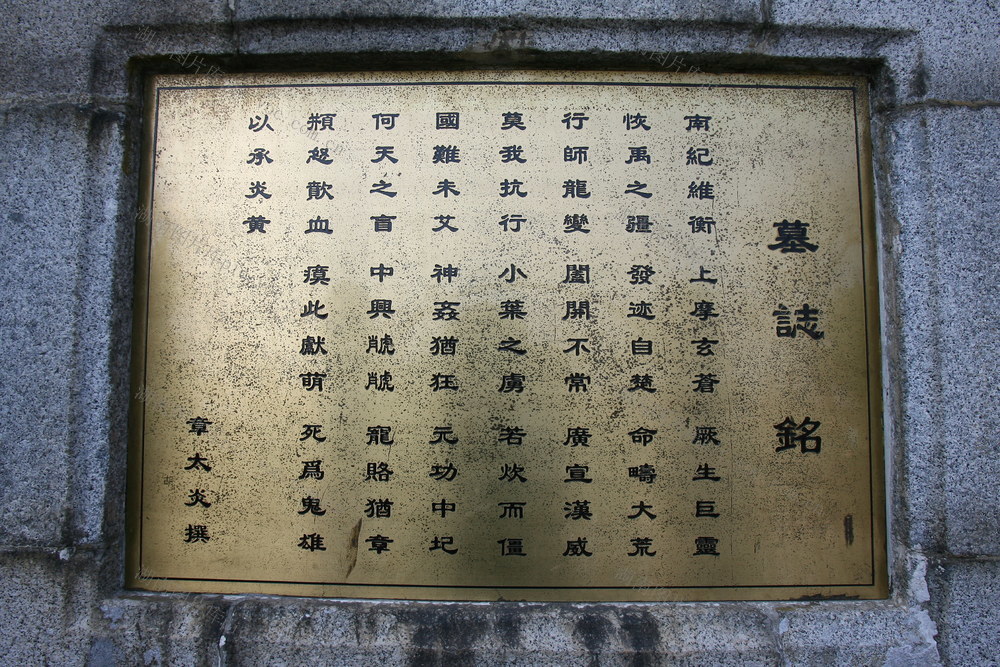 墓誌銘
南紀維衡 上摩玄蒼 厥生巨靈
恢禹之疆 發迹自楚 命疇大荒
行師龍變 闔開不常 廣宣漢威
莫我抗行 小葉之虜 若炊而僵
國難未艾 神姦猶狂 元功中圮
何天之盲 中興 寵賂猶章
歃血 瘼此獻萌 死爲鬼雄
以承炎黄
章太炎撰